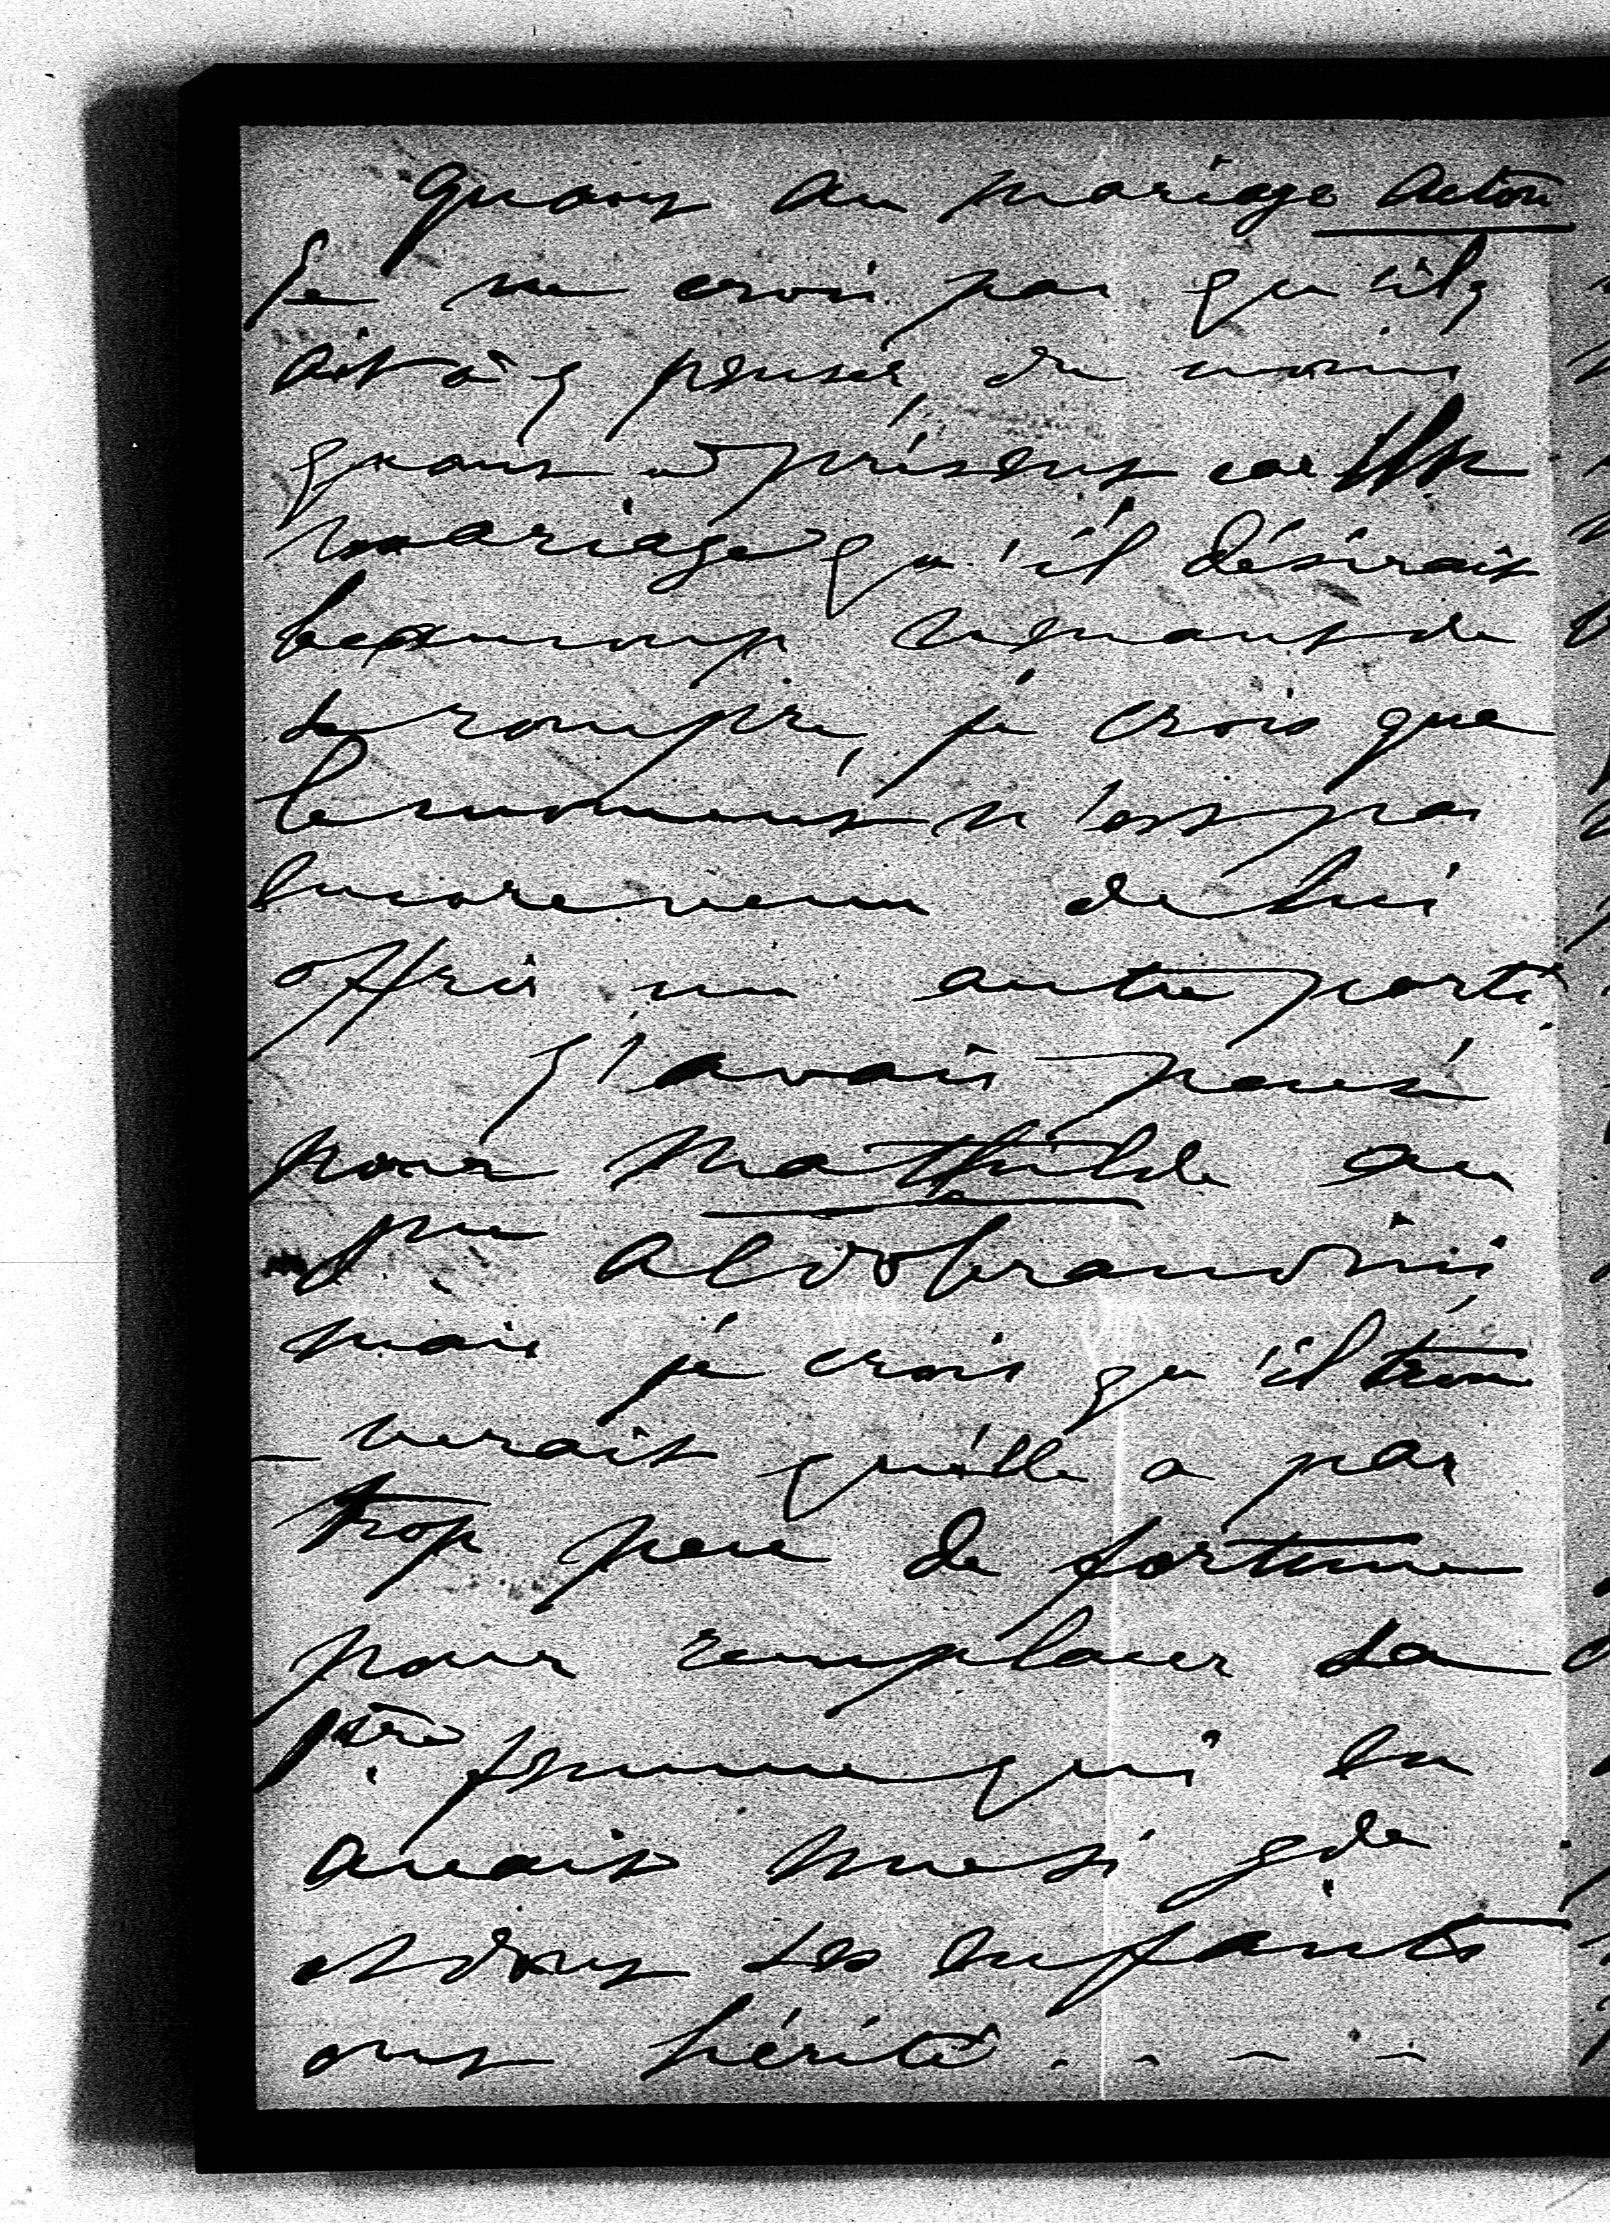 quant au mariage Acton
Je ne crois pas qu'il y
ait à y penser, du moins
quant à présent car
mariage qu'il désirait
beaucoup venant de
se rompre, je crois que
le moment n'est pas
encore venu de lui
offrir un autre parti.
J'avais pensé
pour Mathilde au
pce Aldobrandini
mais je crois qu'il trou
verait qu'elle a par
trop peu de fortune
pour remplacer sa
1ère femme qui en
avait une si gde
et dont ses enfants
ont hérité . . . .